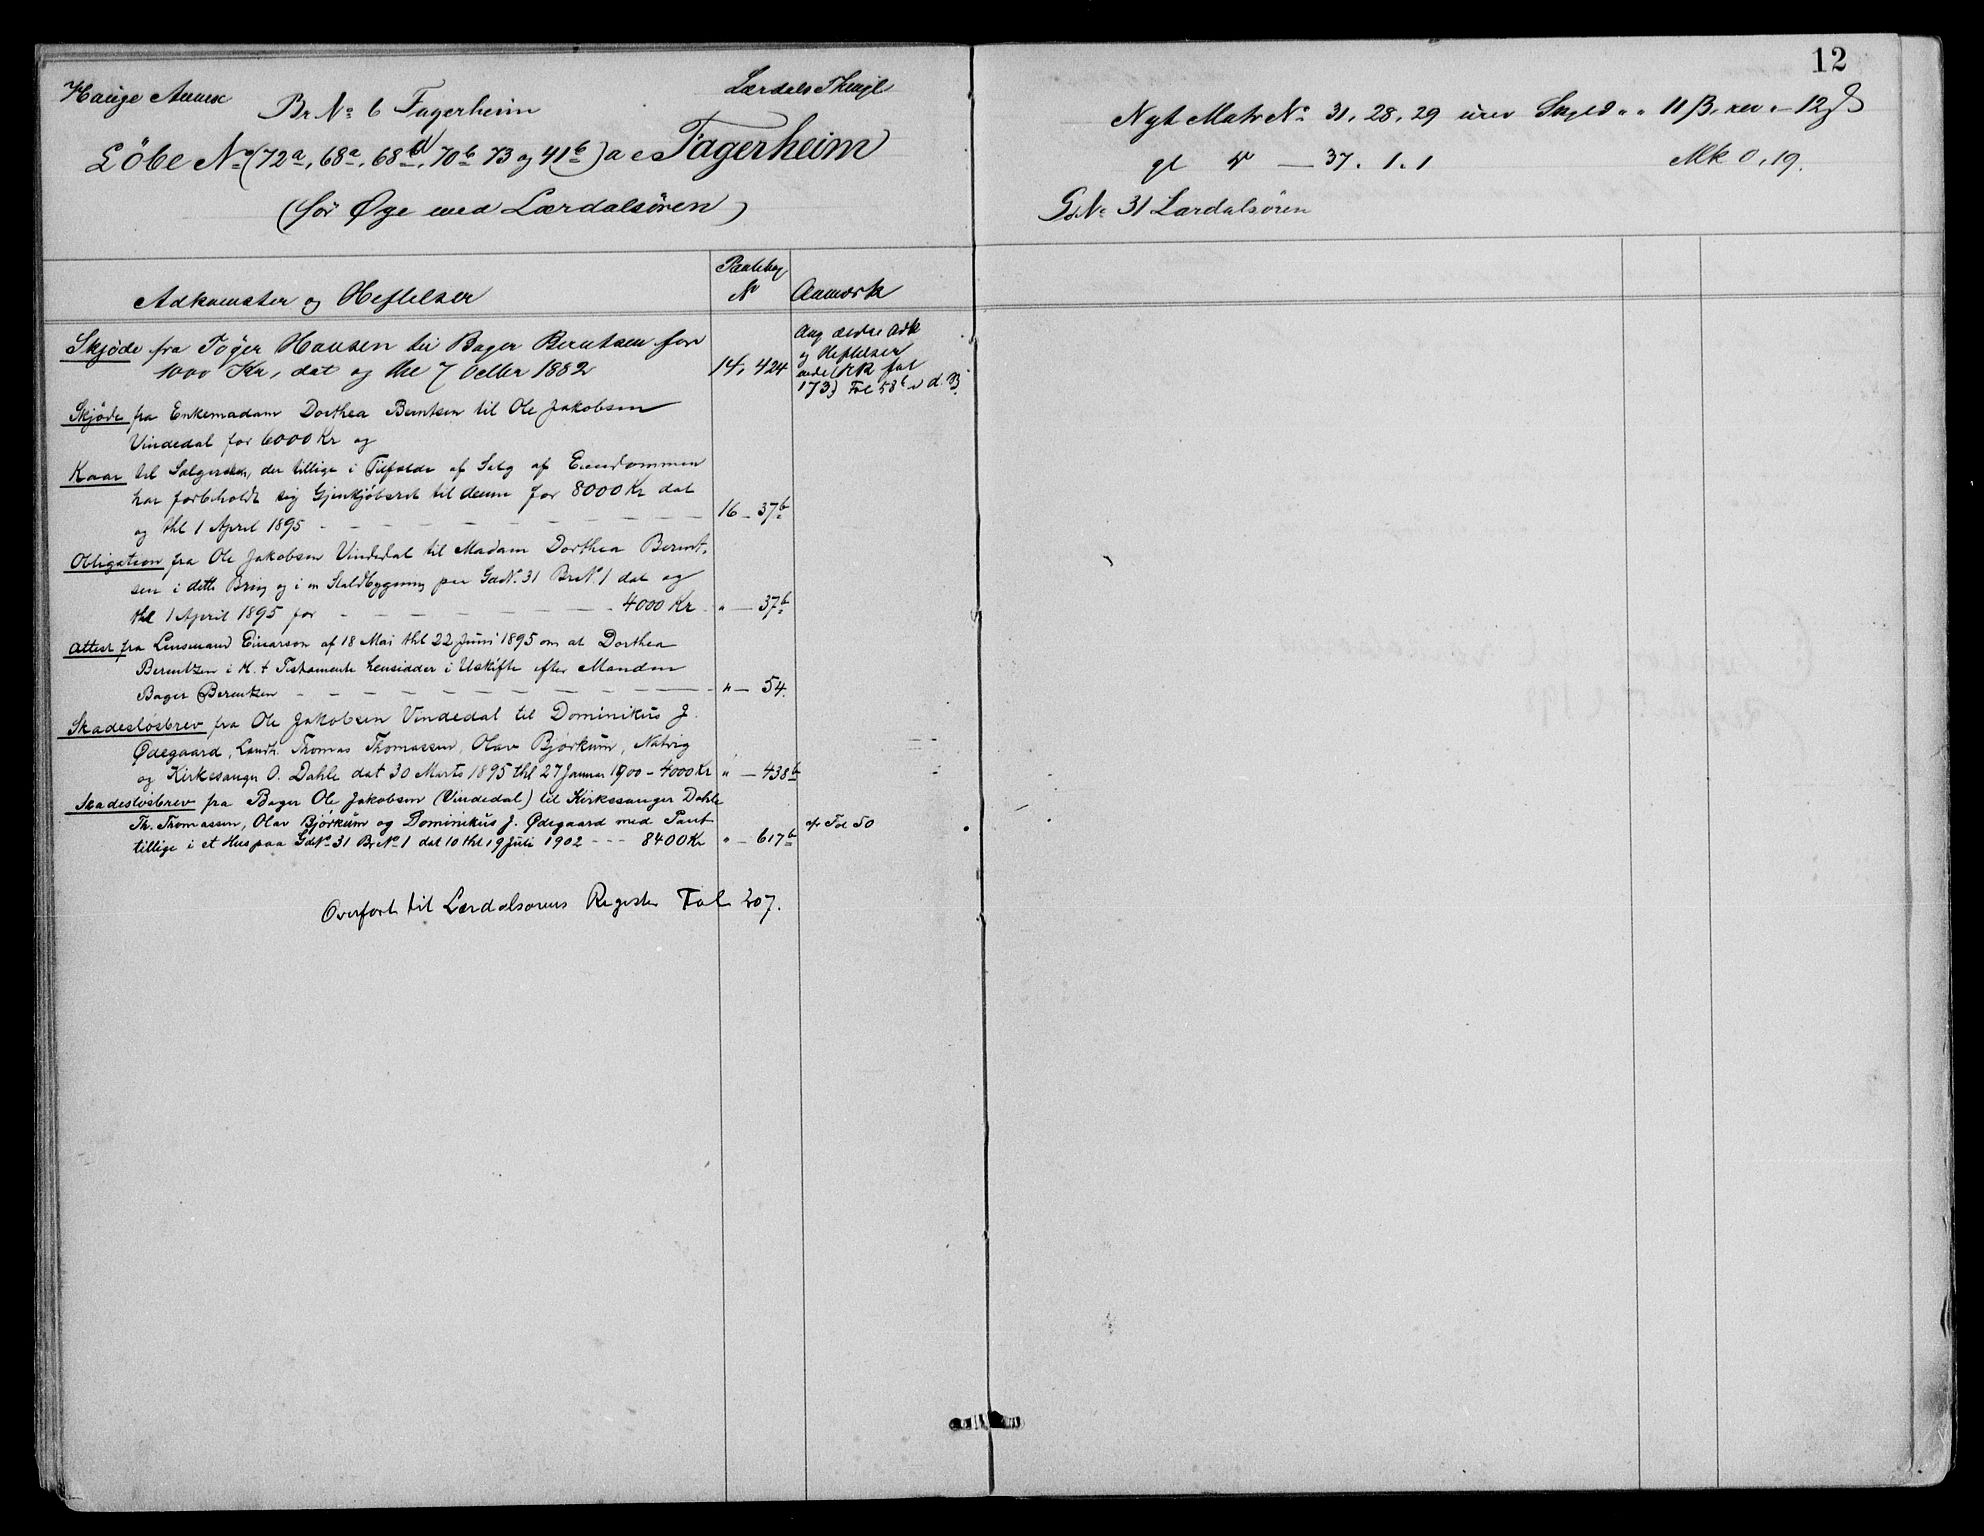 12
Hauge Annex
Lærdals Thingl
Br No 6 Fagerheim
Löbe No (72a, 68a, 68b, 70b 73 og 41b) a e Fagerheim
(før Øye med Lærdalsören)
Nyt Matr No 31, 28, 29 urev Skyld " " 11 β, rev "—12
gl — 37. 1. 1 Mk 0,19.
G No 31 Lærdalsören
Adkomster og Heftelser
Pantebog No
Anmærk
Skjöde fra Töger Hansen til Bager Berntsen for
1000 Kr, dat og thl 7 Octbr 1882 14, 424
Ang ældre Adk
og Heftelser
fol
173) Fol 58b
Skjöde fra Enkemadam Dorthea Berntsen til Ole Jakobsen
Vindedal for 6000 Kr og
Kaar til Sælgersken, der tillige i Tilfælde af Salg af Eiendommen
har forbeholdt sig Gjenkjöbsret til denne for 8000 Kr dat
og thl 1 April 1895 — 16 — 37b
Obligation fra Ole Jakobsen Vindedal til Madam Dorthea Bernt-
sen i dette Brug og i en Staldbygning paa GdNo 31 BrNo 1 dat og
thl 1 April 1895 for — 4000 Kr " — 37b
Attest fra Lensmand Einarson af 18 Mai thl 22 Juni 1895 om at Dorthea
Berentzen i H. t Testamente hensidder i Uskifte efter Manden
Bager Berentzen — " — 54.
Skadeslösbrev fra Ole Jakobsen Vindedal til Dominikus J.
Ødegaard, Landh. Thomas Thomassen, Olav Bjørkum, Natvig
og Kirkesanger O. Dahle dat 30 Marts 1895 thl 27 Januar 1900 – 4000 Kr " — 438b
Skadeslösbrev fra Bager Ole Jakobsen (Vindedal) til Kirkesanger Dahle
Th. Thomassen, Olav Bjørkum og Dominikus J. Ødegaard med Pant
tillige i et Hus paa GdNo 31 BrNo 1 dat 10 thl 19 Juli 1902 - - - 8400 Kr " — 617b
cfr Fol 50
Overført til Lærdalsørens Register Fol 207.